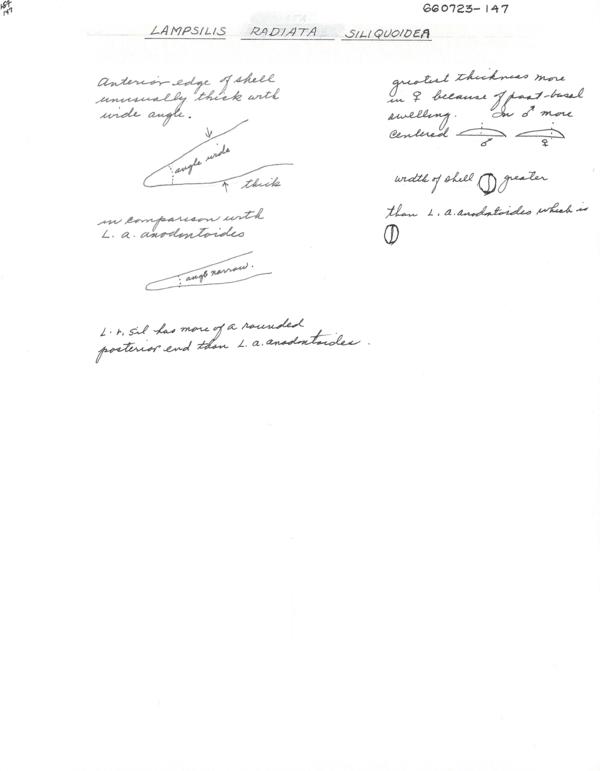 660723-147
147
LAMPSILIS RADIATA SILIQUOIDEA
Anterior edge of shell
unusually thick with
wide angle.
angle wide
thick
in comparison with
L. a. anodontoides
angle narrow.
L. r. sil has more of a rounded
posterior end than L. a. anodontoides.
greatest thickness more
in ♀ because of post-basal
swelling. In ♂ more
centered
♂ ♀
width of shell greater
than L. a. anodontoides which is